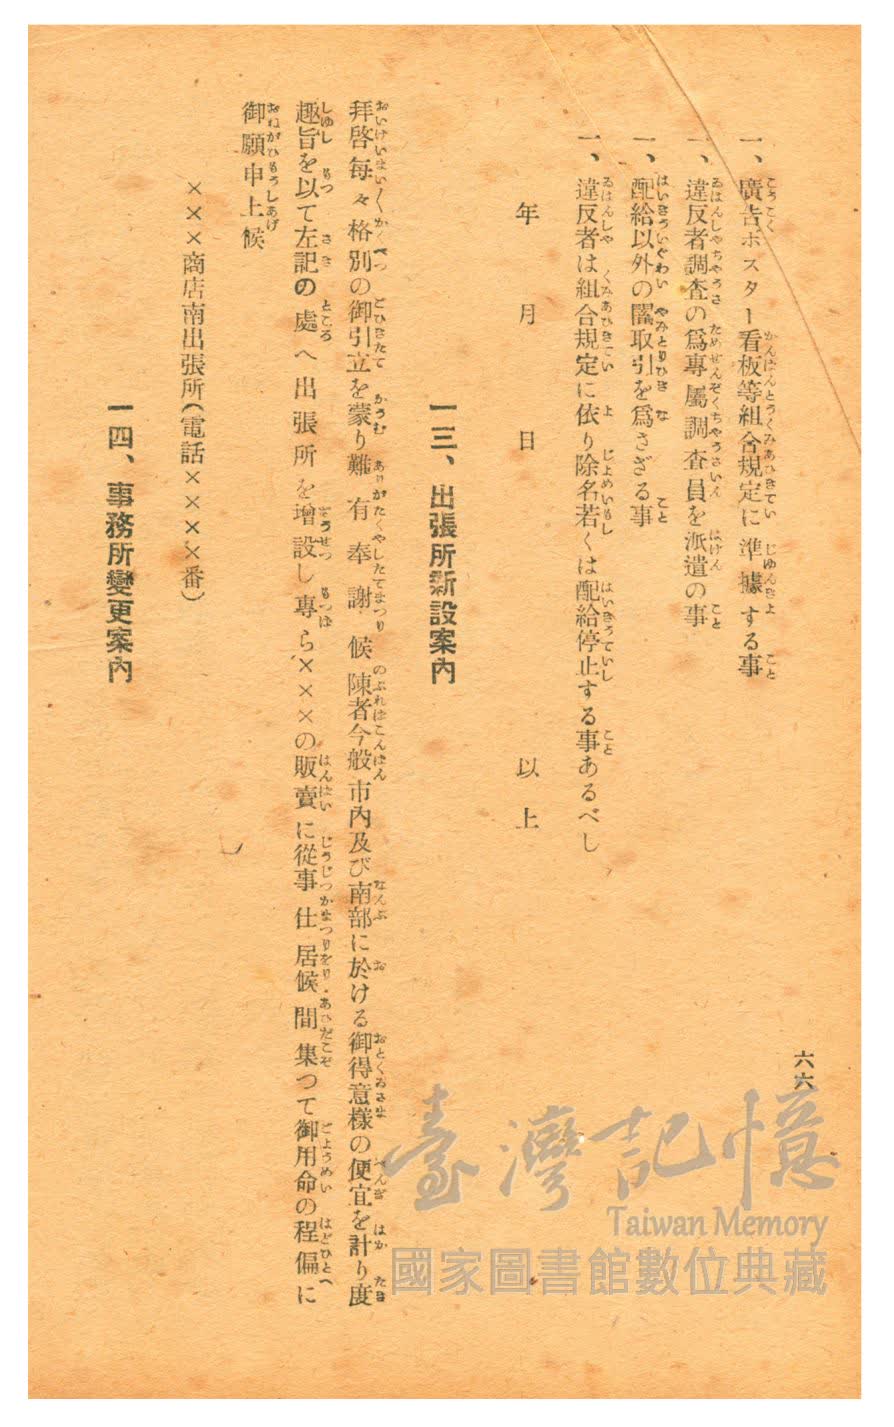 一、廣告ポスター看板等組合規定に準據する事
一、違反者調査の爲專屬調査員を派遣の事
一、配給以外の闇取引を爲さざる事
一、違反者は組合規定に依り除名若くは配給停止する事あるべし
年 月 日 以上
一三、出張所新設案內
拜啓每々格別の御引立を蒙り難有奉謝候陳者今般市內及び南部に於ける御得意樣の便宜を計り度
趣旨を以て左記の處へ出張所を增設し專ら×××の販賣に從事仕居候間集つて御用命の程偏に
御願申上候
×××商店南出張所(電話××××番)
一四、事務所變更案內
六六
臺灣記憶
Taiwan Memory
國家圖書館數位典藏